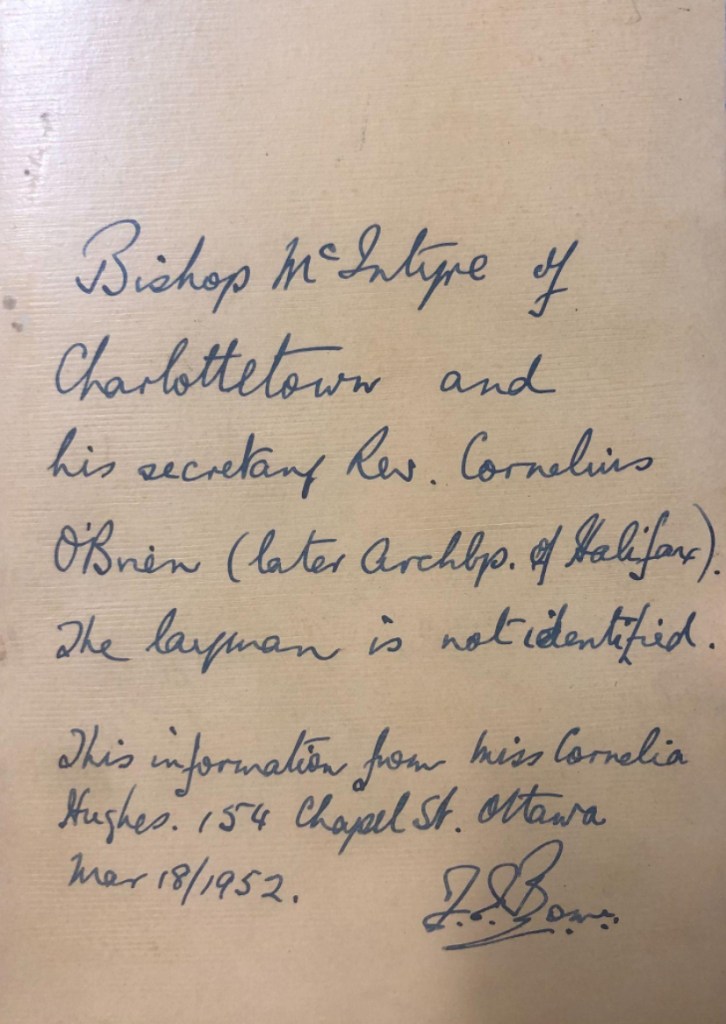 Bishop McIntyre of
Charlottetown and
his secretary Rev. Cornelius
O'Brien (later Archbp. of Halifax).
The layman is not identified.
This information from Miss Cornelia
Hughes. 154 Chapel St. Ottawa
Mar 18/1952.